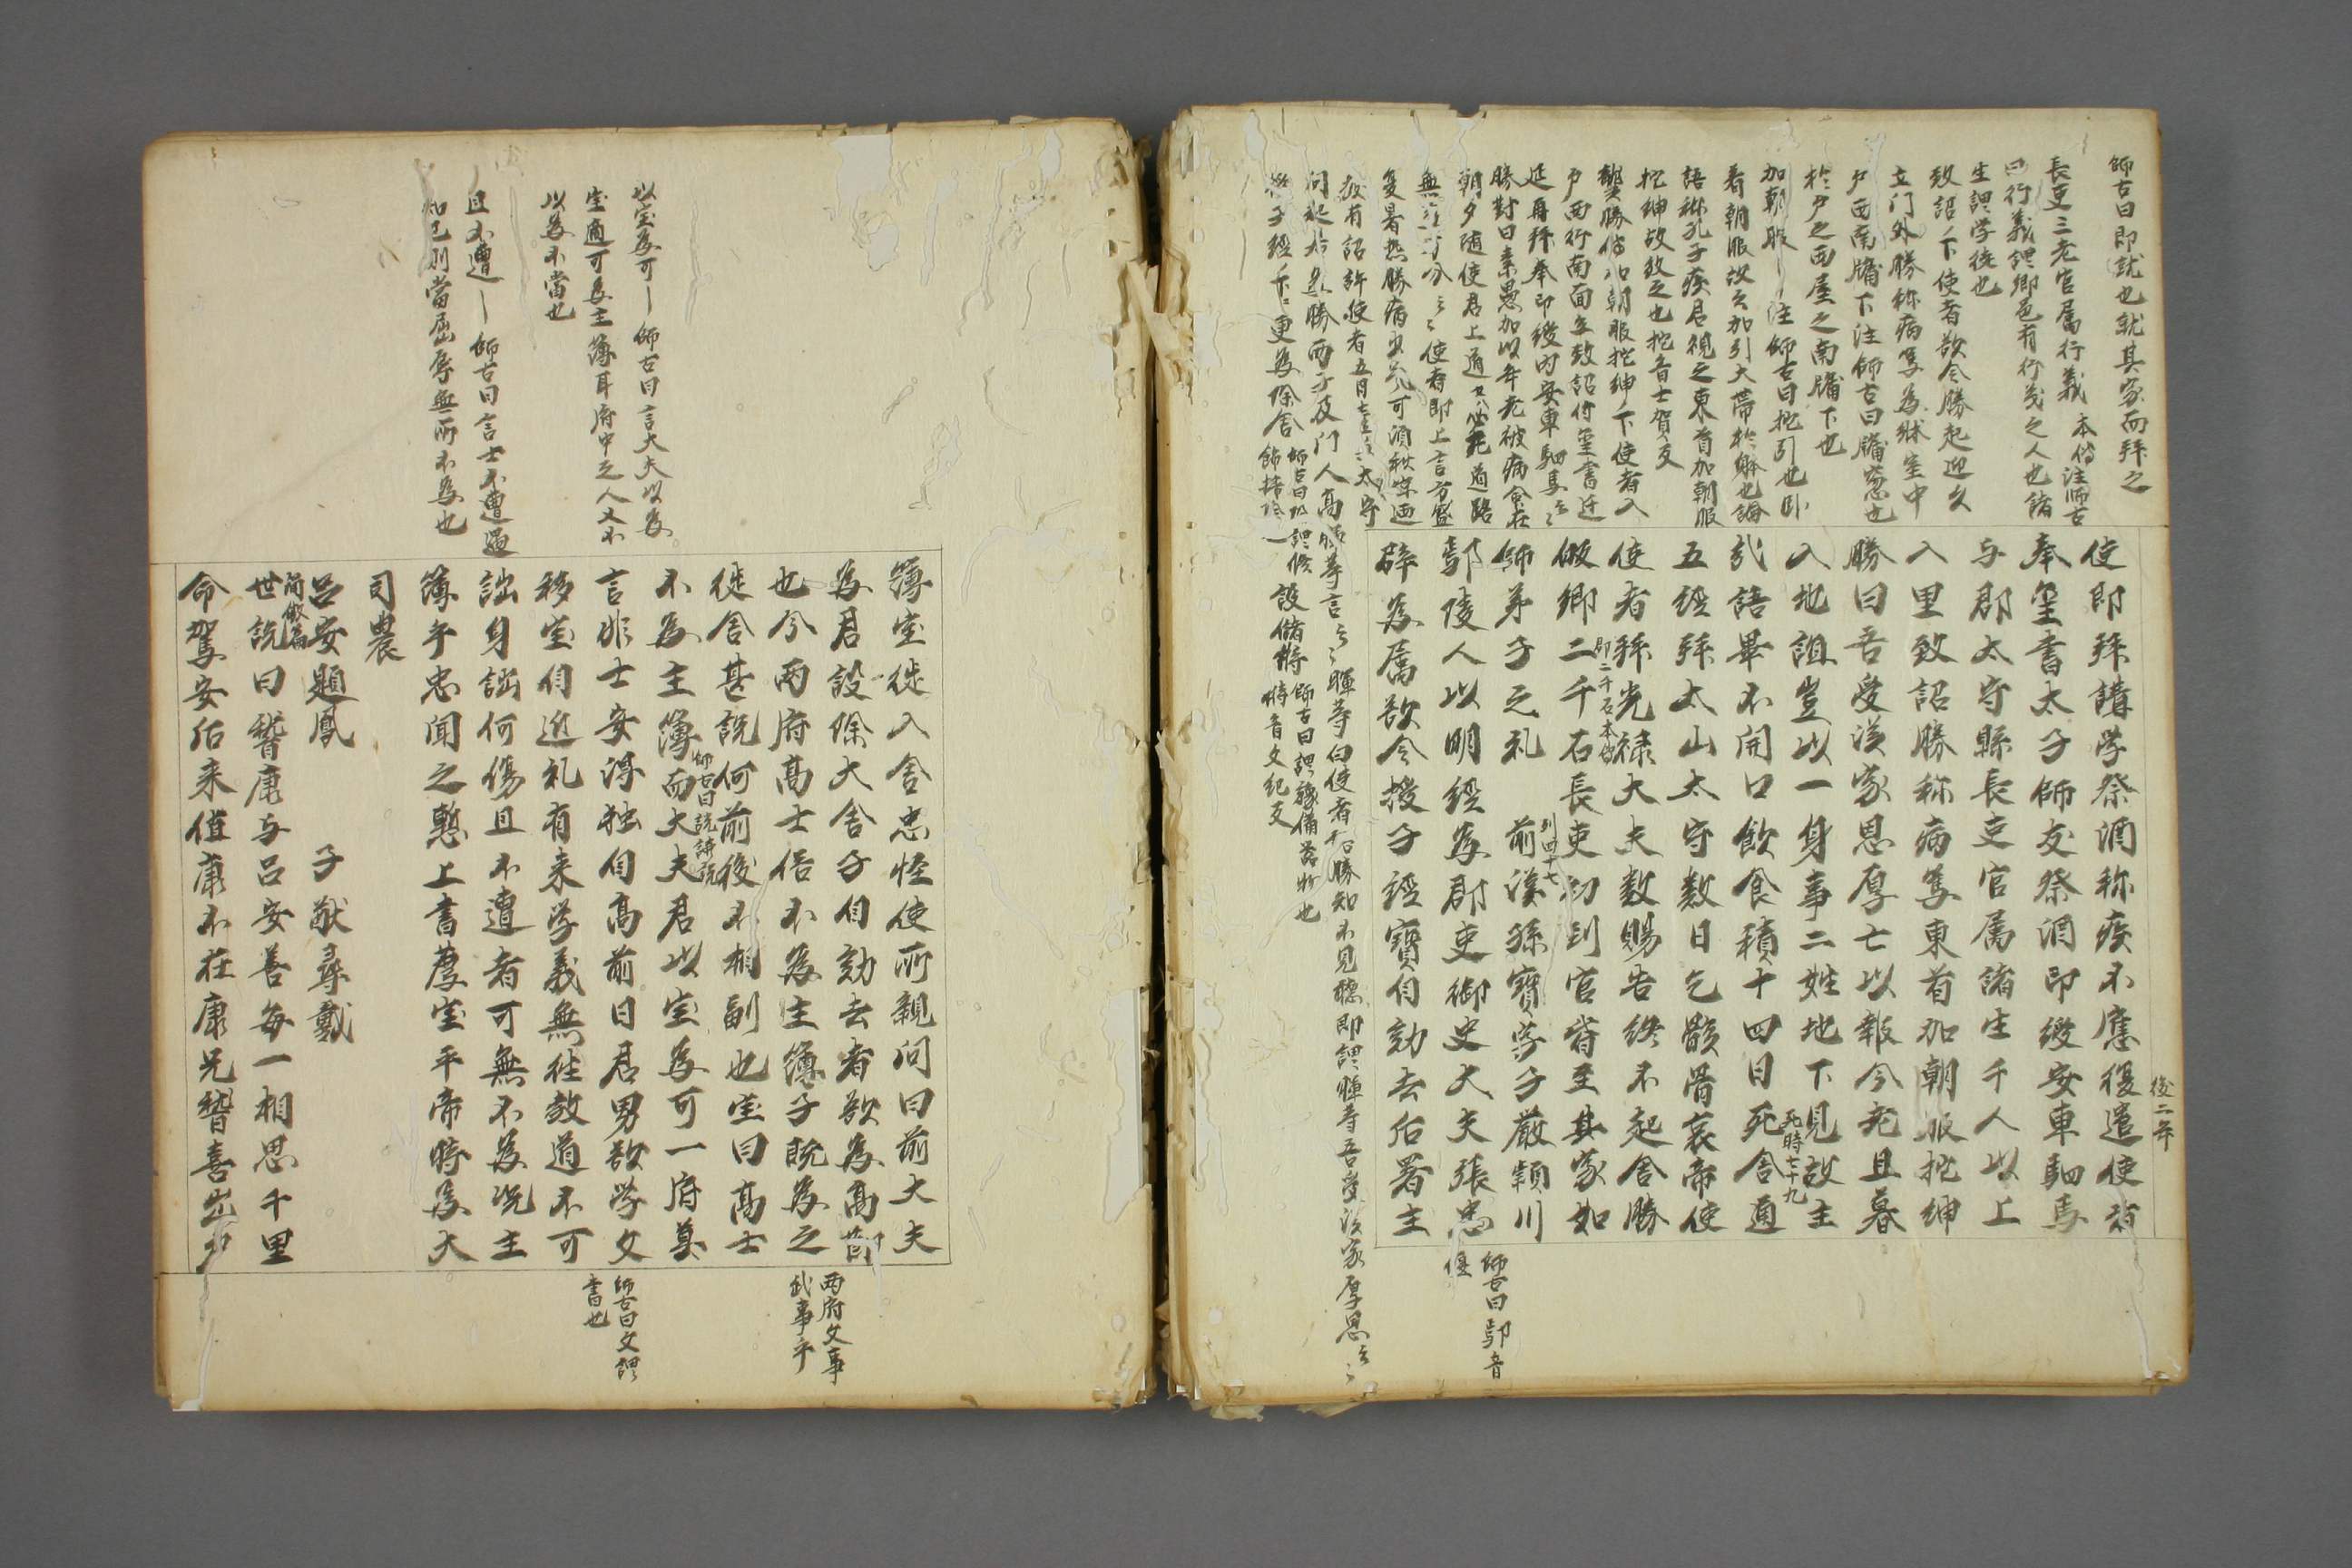 師古曰即就也就其家而拜之
長吏三老官属行義 本傳注師古
曰行義謂郷邑有行義之人也諸
生謂学徒也
致詔〻下使者欲令勝起迎久
立门外勝称病篤為牀室中
戸西南牖下注師古曰牖窓也
於戸之西屋之南牖下也
加朝服〡注師古曰拕引也卧
着朝服故云加引大帯於躰也論
語称孔子疾君視之東首加朝服
拕紳故放之也拕音土賀反
襲勝傳加朝服拕紳〻下使者入
戸西行南面立致詔付璽書迁
延再拜奉印綬内安車駟馬云〻
勝對曰素愚加以年老被病命在
朝夕随使君上道必死道路
無益万分云〻使者即上言方盛
夏暑热勝病少気可湏秋凉廼
發有詔許使者五月壹与太守
問起居為勝両子及门人高暉等言云〻暉等白使者語勝知不見聴即謂暉等吾受漢家厚恩云〻
後二年
使即拜講学祭酒称疾不應復遣使者
奉璽書太子師友祭酒印綬安車駟馬
与郡太守縣長吏官属諸生千人以上
入里致詔勝称病篤東首加朝服拕紳
勝曰吾受漢家恩厚亡以報今老且暮
入地誼豈以一身事二姓地下見故主
死時七十九
哉語畢不開口飲食積十四日死舎通
五經拜太山太守数日乞骸骨哀帝使
使者拜光禄大夫数賜告終不起舎勝
郡二千石本傳
依郷二千石長吏初到官皆至其家如
師弟子之礼 前漢孫寶字子厳頴川
列四十七
鄢陵人以明經為郡吏御史大夫張忠
辟為属欲令授子經寶自劾去后署主
師古曰鄢音
偃
簿宝徙入舎忠怪使所親问曰前大夫
為君設除大舎子自劾去者欲為高節
也今両府高士俗不為主簿子既為之
両府文事
武事乎
徙舎甚説何前後不相副也宝曰高士
師古曰説讀悦
不為主簿而大夫君以宝為可一府莫
言非士安得独自高前日君男欲学文
師古曰文謂
書也
移宝自近礼有来学義無往教道不可
詘身詘何傷且不遭者可無不為况主
簿乎忠聞之慙上書薦宝平帝時為大
司農
以宝為可〡師古曰言大夫以為
宝適可為主簿耳府中之人又不
以為不當也
且不遭〡師古曰言士不遭遇
知己則當屈辱無所不為也
吕安題鳳 子猷尋戴
簡傲篇
世説曰嵆康与吕安善每一相思千里
命駕安后来値康不在康兄嵆喜出戸